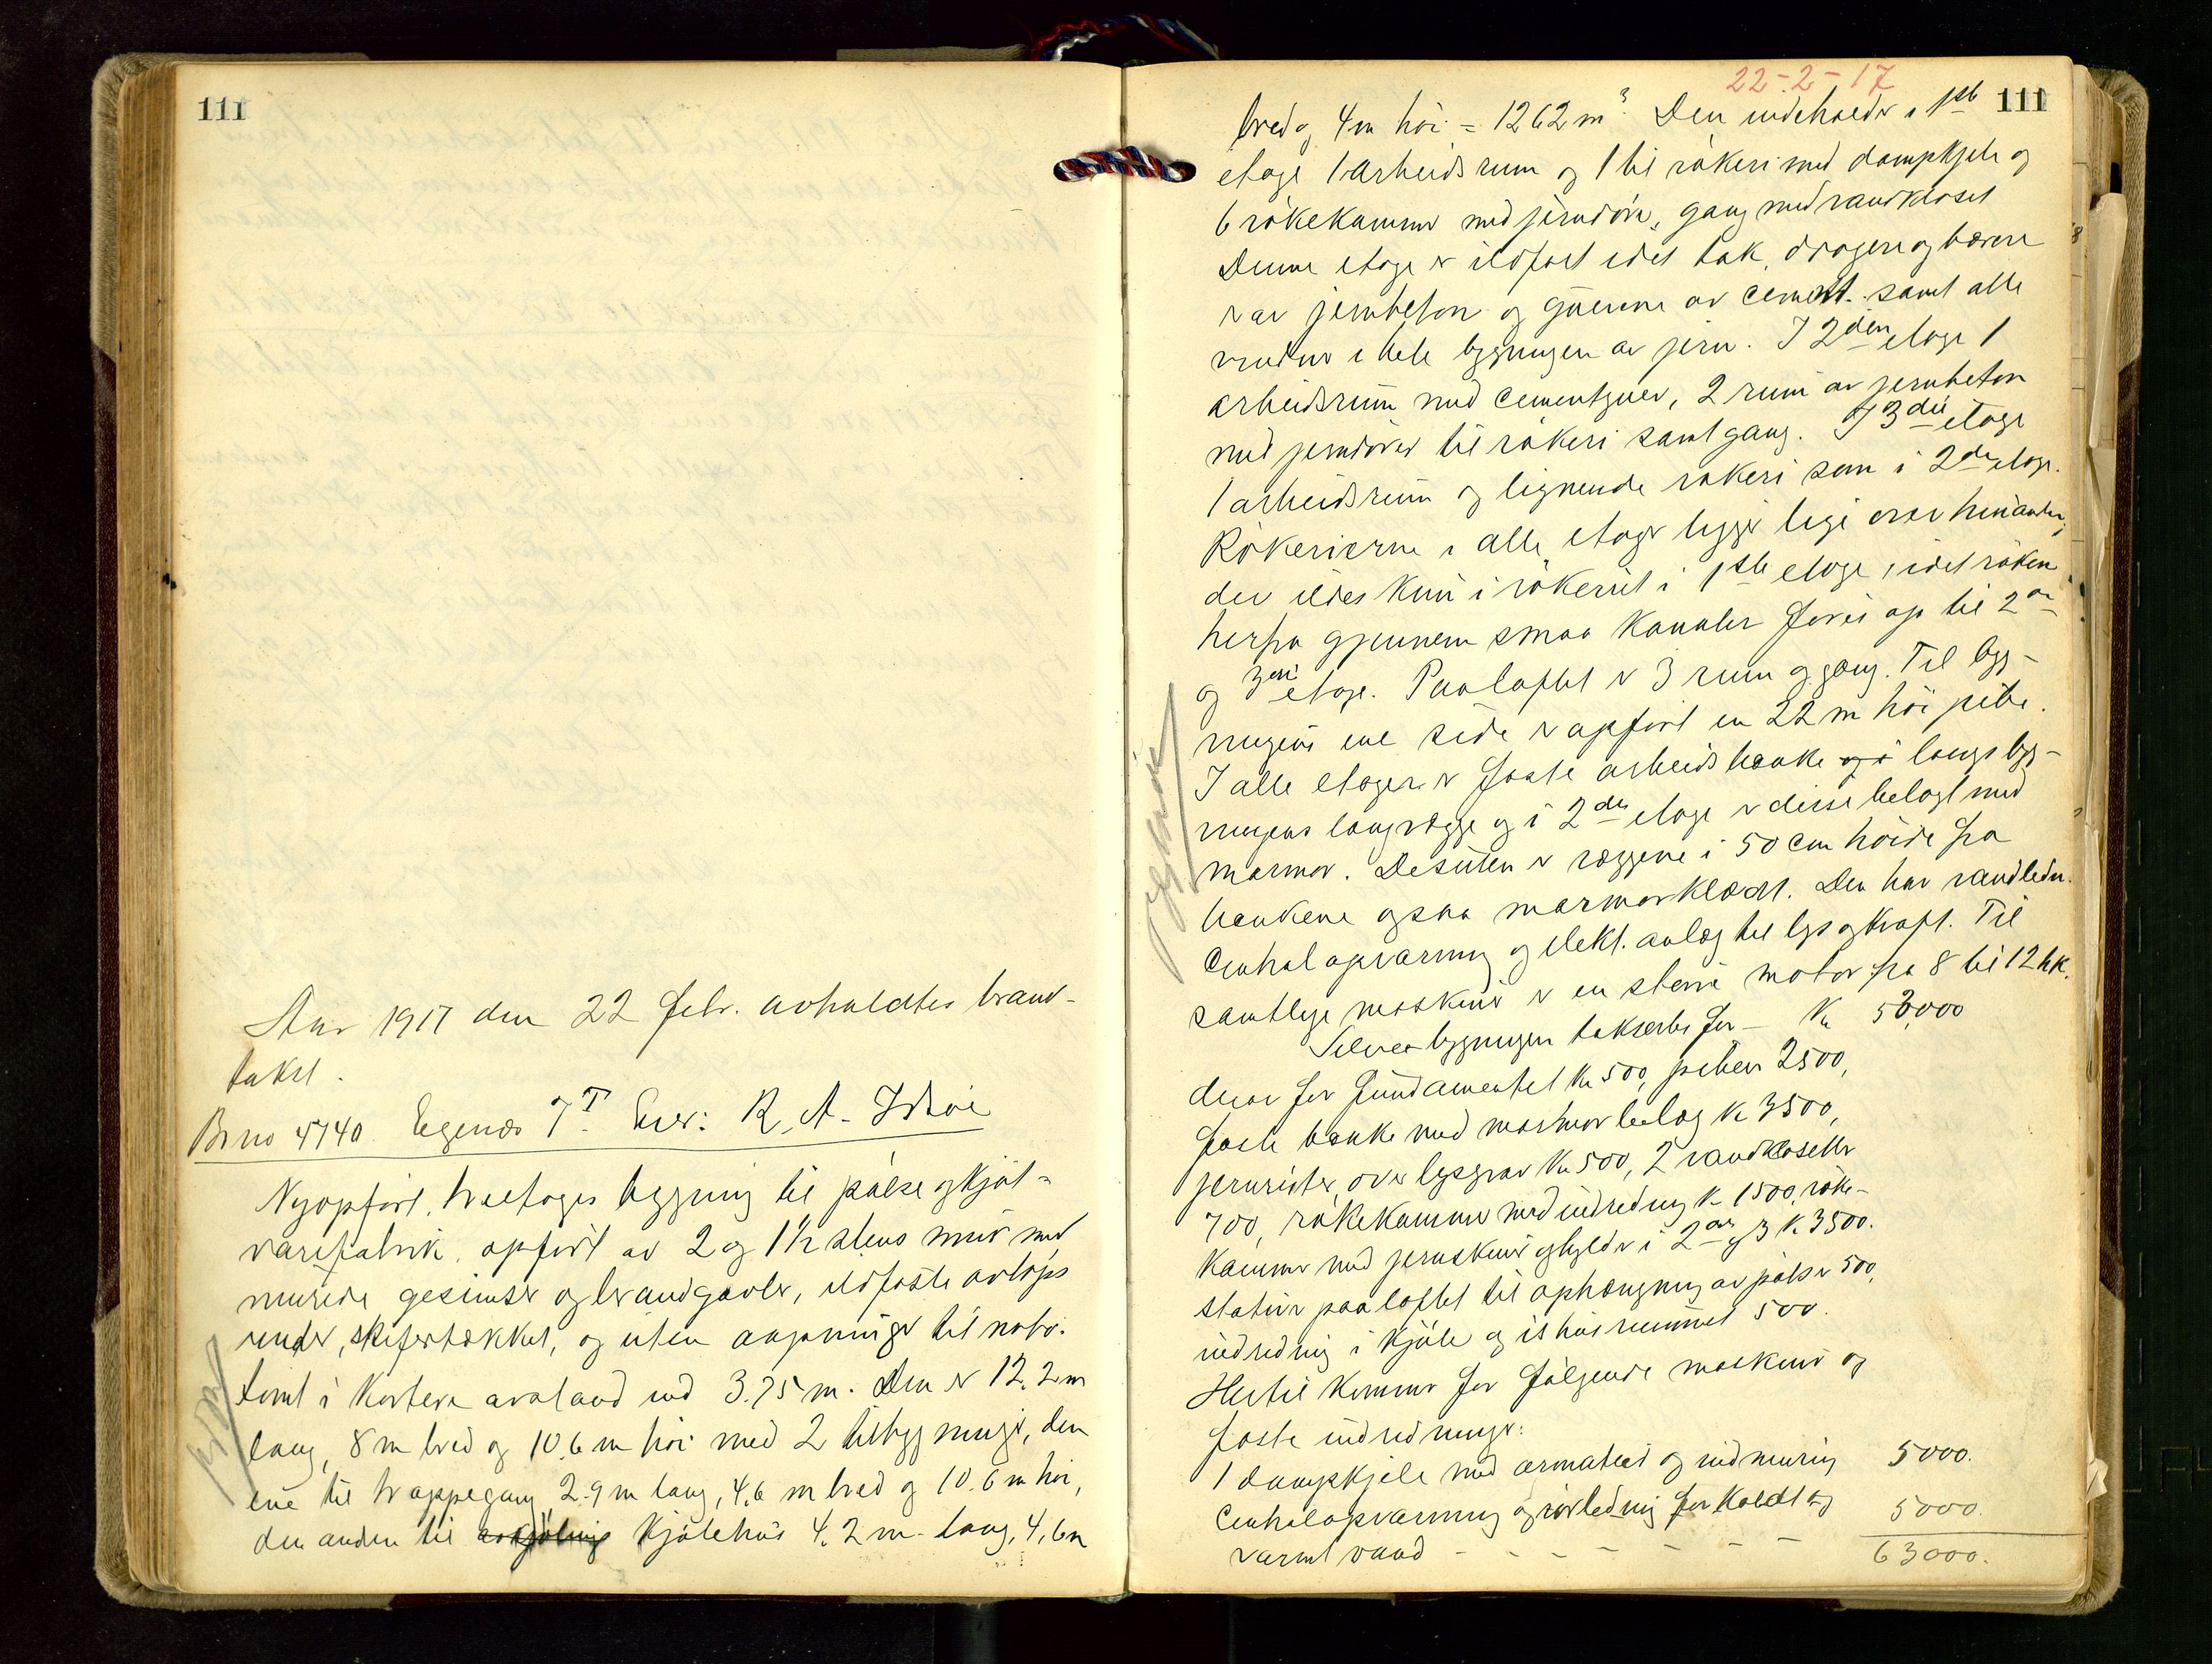 111
Aar 1917 den 22 febr. avholdtes brand-
takst.
Br no 4740 Egenæs 7T. Eier: R. A. Idsøe
Nyopført, treetages bygning til pølse og kjøt-
varefabrik, opført av 2 og 1½ stens mur med
murede gesimser og brandgavler, ildfaste avløps
render, skifertækket, og uten aapninger til nabo-
tomt i kortere avstand end 3.75 m. Den er 12.2 m
lang, 8 m bred og 10.6 m høi med 2 tilbygninger, den
ene til trappegang 2.9 m lang, 4,6 m bred og 10.6 m høi,
den anden til avkjøling kjølehus 4.2 m lang, 4,6 m
22-2-17
111
bred og 4 m høi = 1262 m³. Den indeholder i 1ste
etage 1 arbeidsrum og 1 til røkeri med dampkjele og
6 røkekammer med jerndøre, gang med vandkloset
Denne etage er ildfast idet tak, dragere og bærere
er av jernbeton og gulvene av cement samt alle
vinduer i hele bygningen av jern. I 2den etage 1
arbeidsrum med cementgulv, 2 rum av jernbeton
med jerndører til røkeri samt gang. I 3die etage
1 arbeidsrum og lignende røkeri som i 2den etage.
Røkerierne i alle etager ligger like over hinanden,
der ildes kun i røkeriet i 1ste etage, idet røken
herfra gjennem smaa kanaler føres op til 2en
og 3die etage. Paa loftet er 3 rum og gang. Til byg-
ningens ene side er opført en 22 m høi pibe.
I alle etager er faste arbeidsbænke og i langs byg-
ningens langvægge og i 2den etage er disse belagt med
marmor. Desuten er væggene i 50 cm høide fra
bænkene ogsaa marmorklædt. Den har vandledn.
Centralopvarming og elekt. anlæg til lys og kraft. Til
samtlige maskiner er en større motor fra 8 til 12 hk.
Selve bygningen takseres for - Kr 53,000
derav for fundamentet Kr 500, piben 2500,
faste bænke med marmorbelæg Kr 3500,
jernrister over lysgrav Kr 500, 2 vandklosetter
700, røkekammer med indredning Kr 1500, røke-
kammer med jernskinner og hylder i 2den og 3 Kr 3500.
stativer paa loftet til ophængning av pølser 500,
indredning i kjøle og ishusrummet 500.
Hertil kommer for følgende maskiner og
faste indredninger:
1 dampkjele med armatur og indmuring 5000.
Centralopvarming og rørledning for koldt og 5000.
varmt vand - - - - - - - 63000.